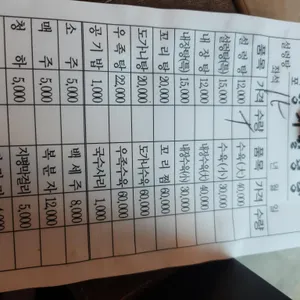 설렁탕
좌석
년 월 일
품목 가격 수량 품목 가격 수량
설 렁 탕 12,000 수육(大) 40,000
설렁탕(특) 15,000 수육(小) 30,000
내 장 탕 12,000 내장수육(大) 40,000
내장탕(특) 15,000 내장수육(小) 30,000
꼬 리 탕 20,000 꼬 리 찜 60,000
도가니탕 20,000 도가니수육 60,000
우 족 탕 22,000 우족수육 60,000
공 기 밥 1,000 국수사리 1,000
소 주 5,000 백 세 주 8,000
맥 주 5,000 복 분 자 12,000
청 하 5,000 지평막걸리 5,000